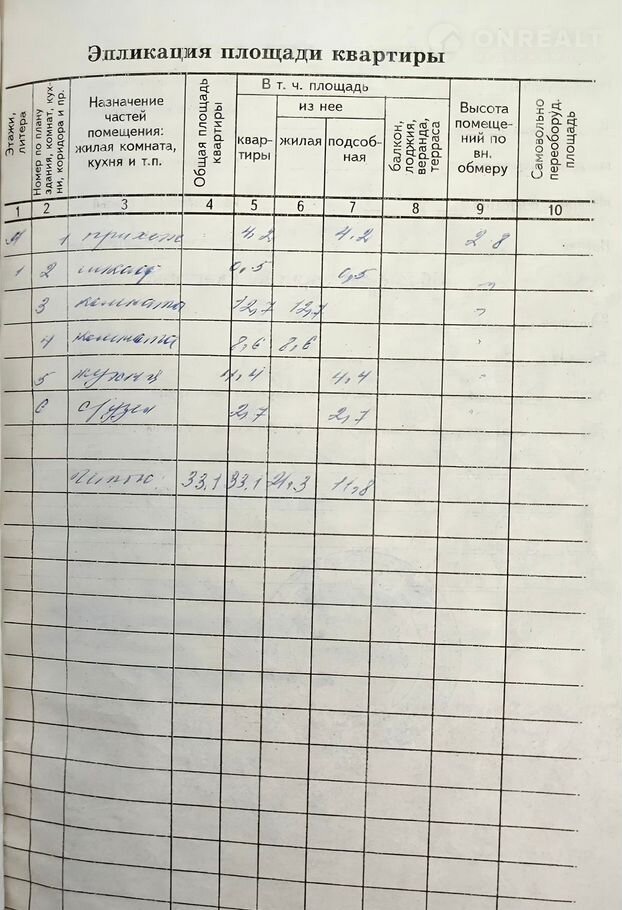 ONREALT
Эпликация площади квартиры
Этажи, литера
Номер по плану здания, комнат, кухни, коридора и пр.
Назначение частей помещения: жилая комната, кухня и т.п.
Общая площадь квартиры
В т. ч. площадь
из нее
квар-
тиры
жилая
подсоб-
ная
балкон, лоджия, веранда, терраса
Высота
помеще-
ний по
вн.
обмеру
Самовольно переоборуд. площадь
1 2 3 4 5 6 7 8 9 10
1 прихож 4,2 4,2 2 8
1 2 шкаф 0,5 0,5
3 комната 12,7 12,7
4 комната 8,6 8,6
5 кухня 4,4 4,4
6 с/узел 2,7 2,7
Итого: 33,1 33,1 21,3 11,8